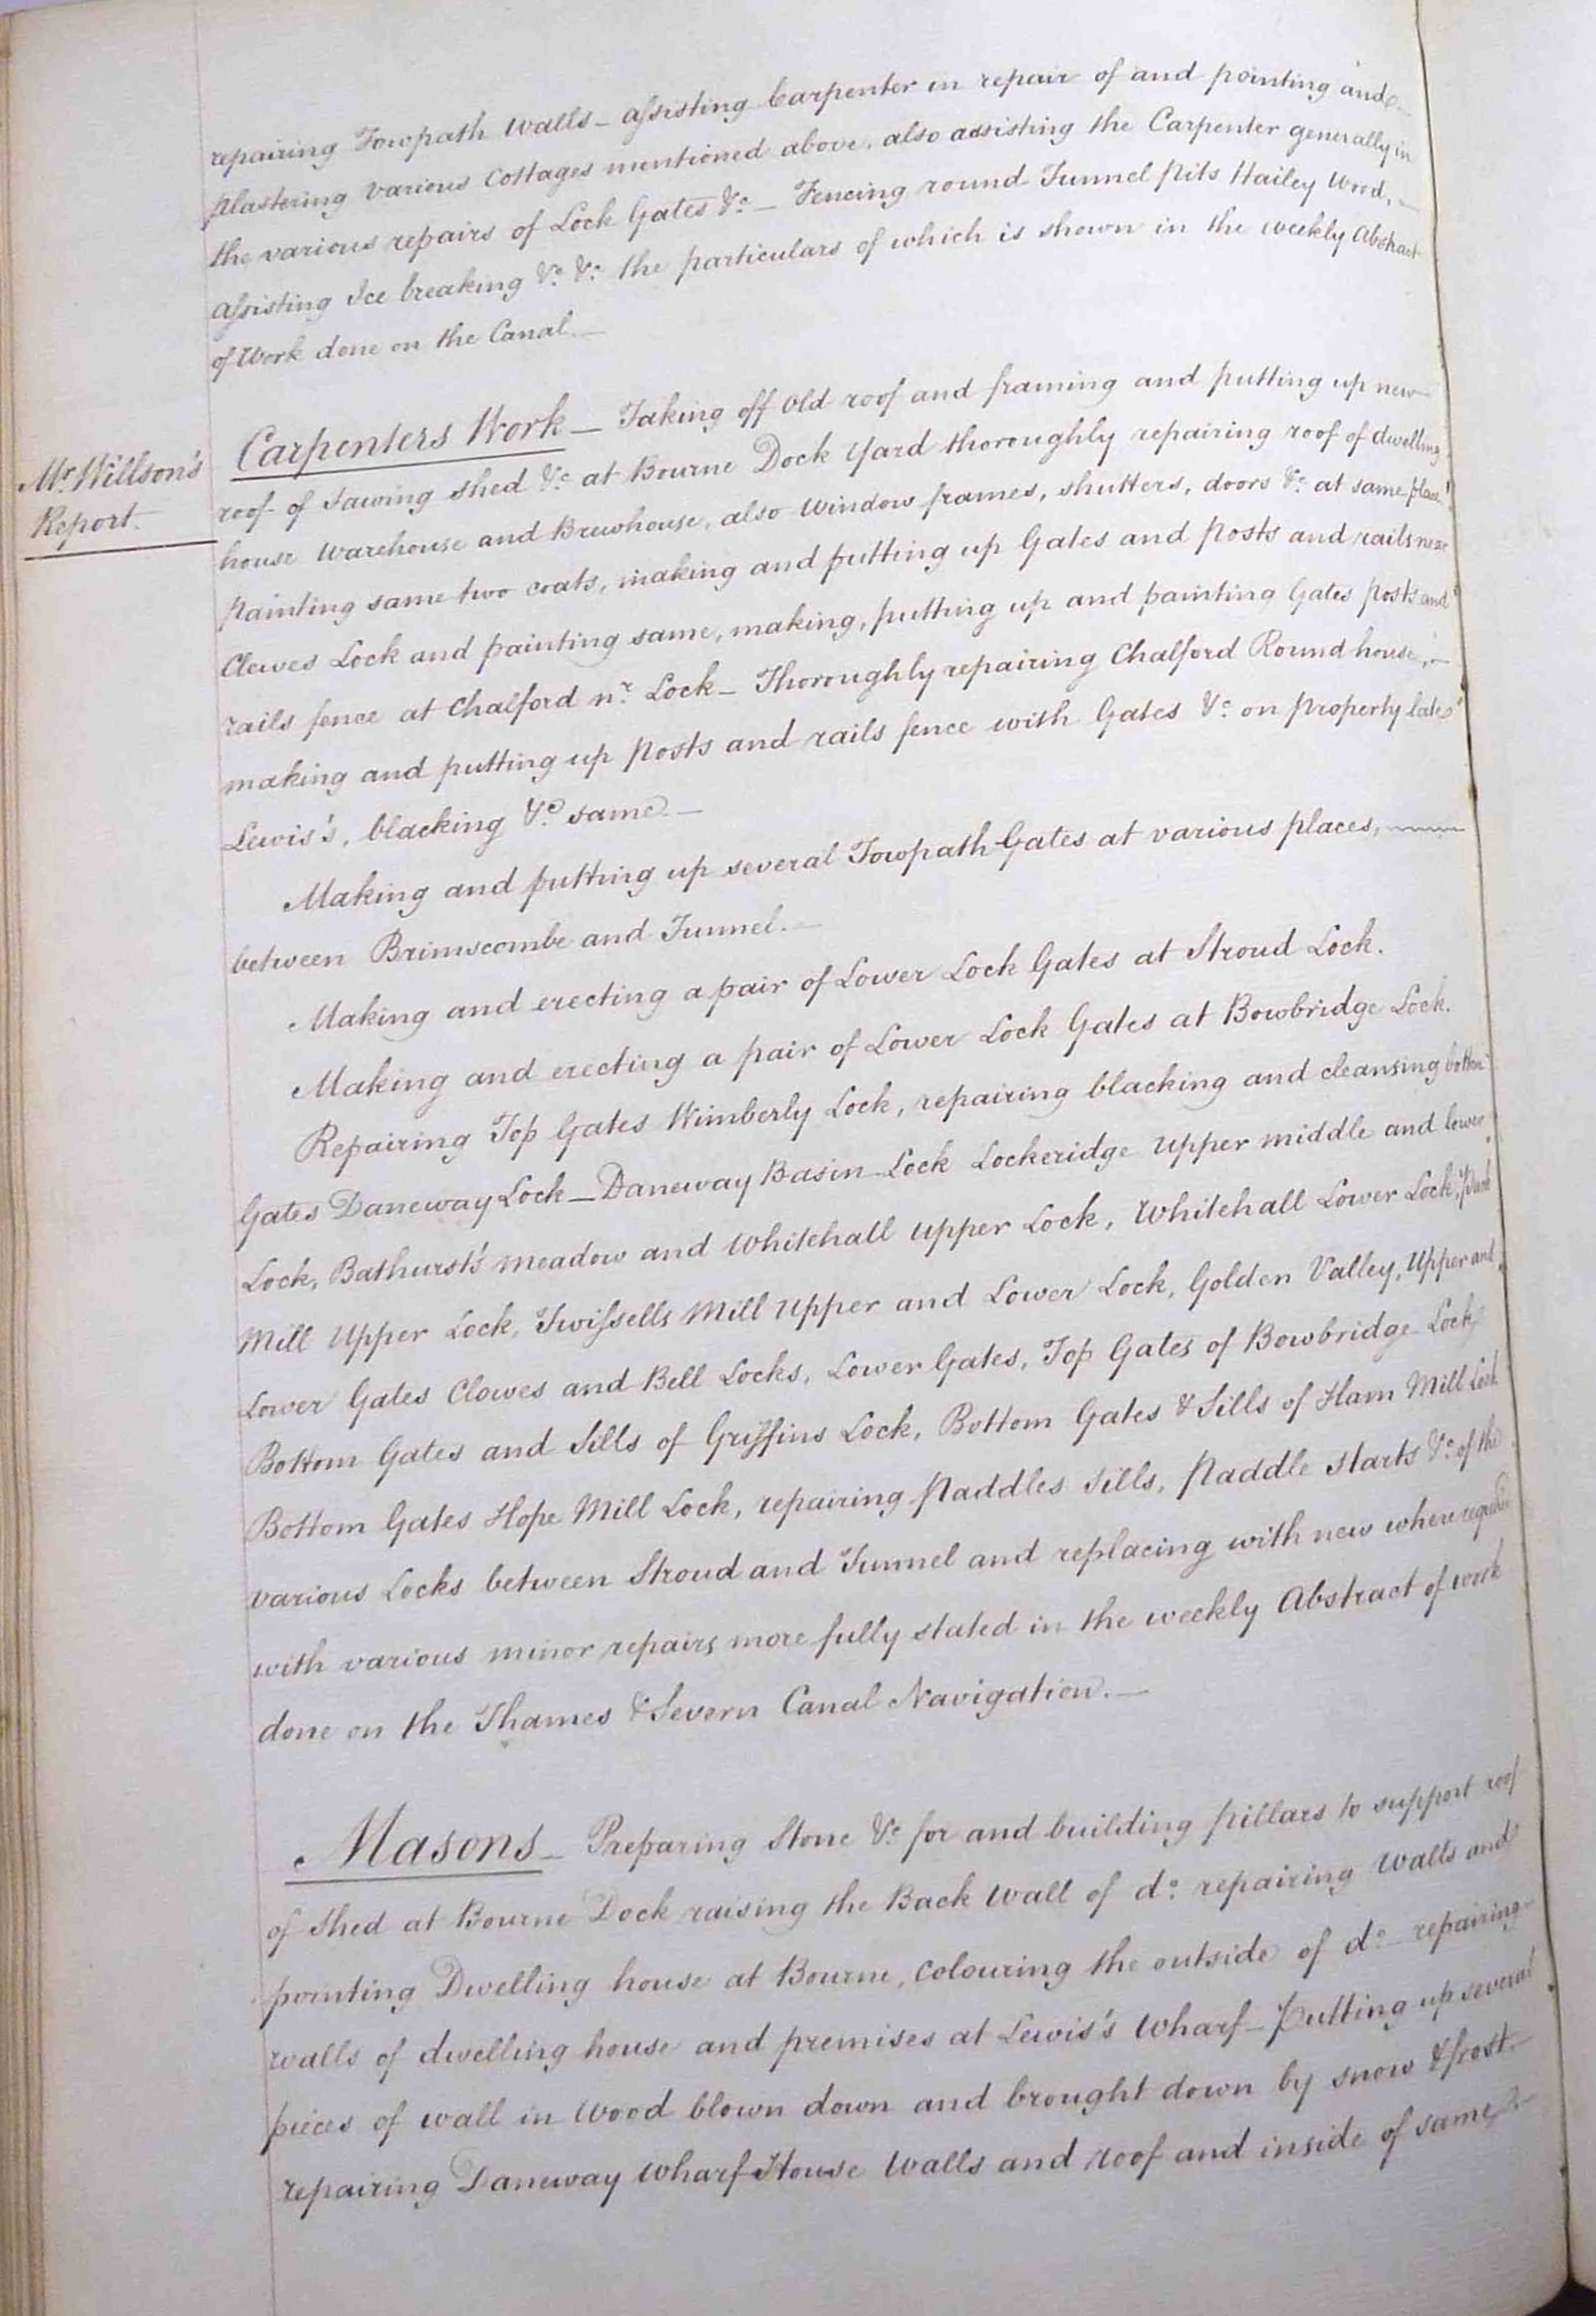 repairing Towpath Walls – assisting Carpenter in repair of and pointing and
plastering various Cottages mentioned above, also assisting the Carpenter generally in
the various repairs of Lock Gates &c – Fencing round Tunnel Pits Hailey Wood, –
assisting Ice breaking &c &c the particulars of which is shown in the weekly Abstract
of Work done on the Canal. –
Mr. Willson's
Report.
Carpenters Work – Taking off old roof and framing and putting up new
roof of Sawing shed &c at Bourne Dock Yard thoroughly repairing roof of dwelling
house Warehouse and Brewhouse, also Window frames, shutters, doors &c at same place
painting same two coats, making and putting up Gates and posts and rails near
Clowes Lock and painting same, making, putting up and painting Gates posts and
rails fence at Chalford nr. Lock – Thoroughly repairing Chalford Round house, –
making and putting up Posts and rails fence with Gates &c on property late
Lewis's, blacking &c same. –
Making and putting up several Towpath Gates at various places,
between Brimscombe and Tunnel. –
Making and erecting a pair of Lower Lock Gates at Stroud Lock.
Making and erecting a pair of Lower Lock Gates at Bowbridge Lock.
Repairing Top Gates Wimberly Lock, repairing blacking and cleansing bottom
Gates Daneway Lock – Daneway Basin Lock Lockeridge Upper middle and lower
Lock, Bathurst's meadow and Whitehall upper Lock, Whitehall Lower Lock, Puck
Mill Upper Lock, Twissells Mill Upper and Lower Lock, Golden Valley, Upper and
Lower Gates Clowes and Bell Locks, Lower Gates, Top Gates of Bowbridge Lock,
Bottom Gates and Sills of Griffins Lock, Bottom Gates & Sills of Ham Mill Lock
Bottom Gates Hope Mill Lock, repairing Paddles Sills, Paddle starts &c of the
various Locks between Stroud and Tunnel and replacing with new where required
with various minor repairs more fully stated in the weekly Abstract of work
done on the Thames & Severn Canal Navigation. –
Masons – Preparing Stone &c for and building pillars to support roof
of Shed at Bourne Dock raising the Back Wall of do. repairing Walls and
pointing Dwelling house at Bourne, Colouring the outside of do – repairing
walls of dwelling house and premises at Lewis's Wharf – Putting up several
pieces of wall in Wood blown down and brought down by snow & frost –
repairing Daneway Wharf House Walls and roof and inside of same, –